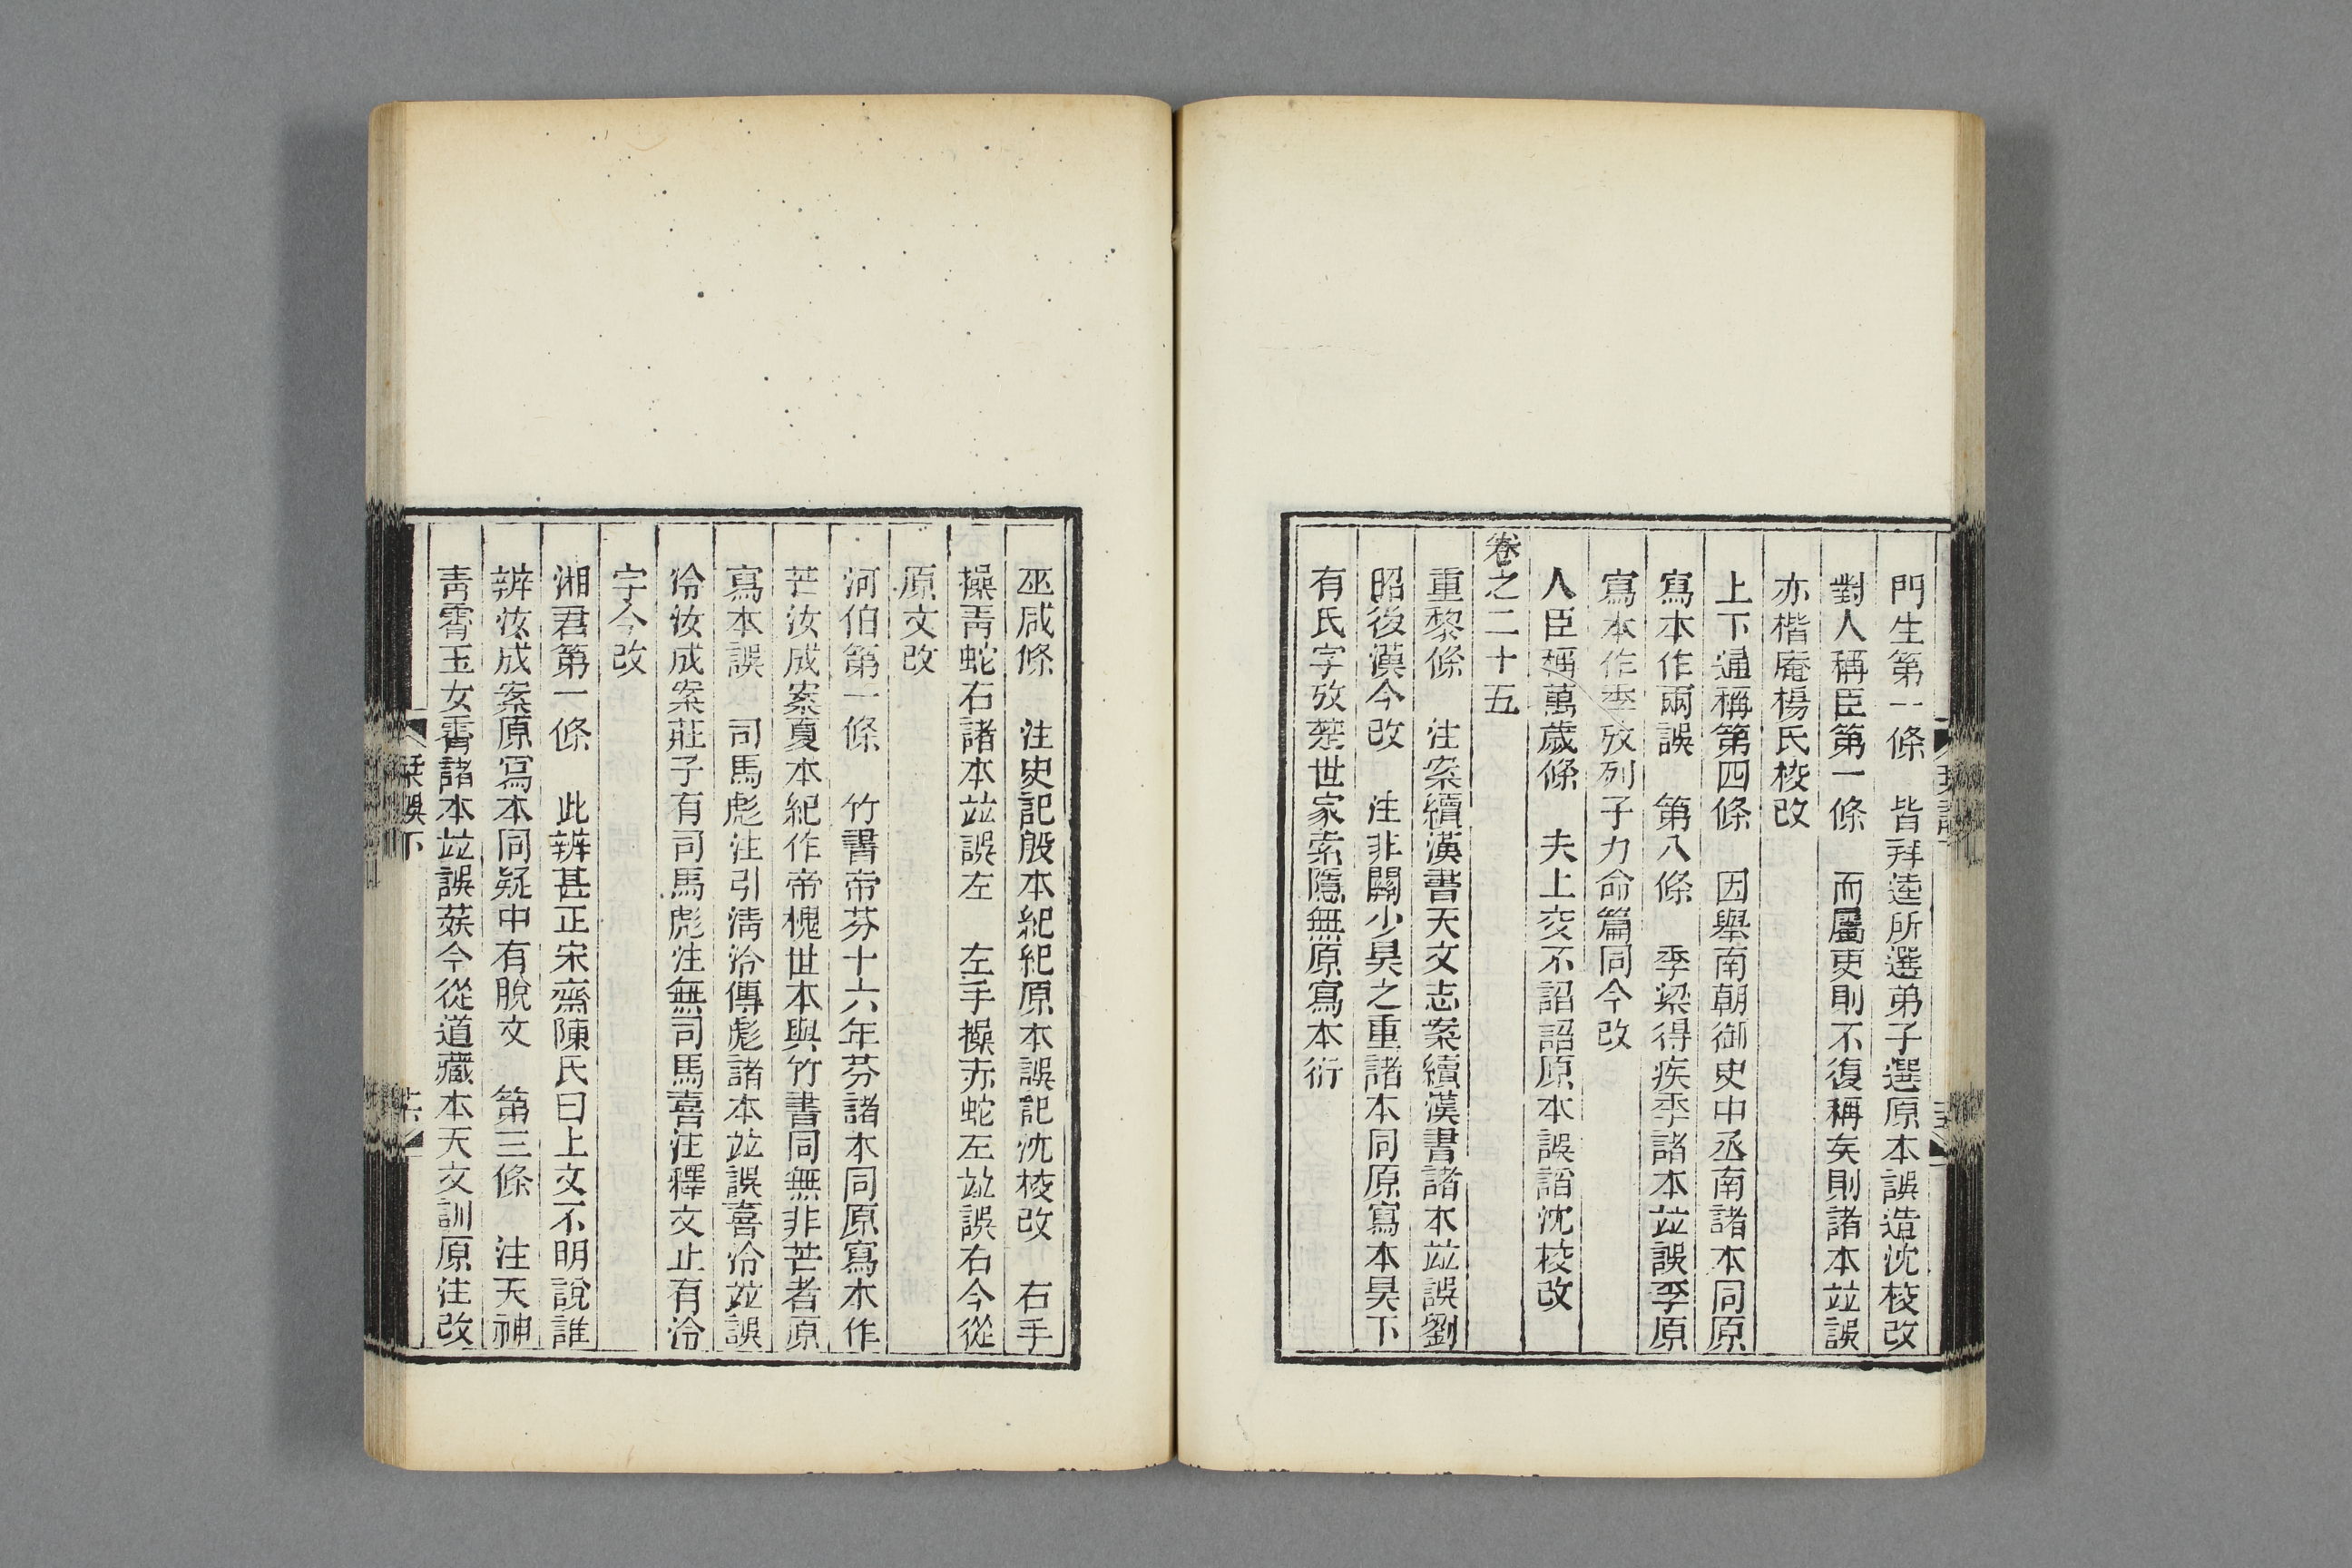 門生第一條　皆拜逵所選弟子選原本誤造沈校改
對人稱臣第一條　而屬吏則不復稱矣則諸本竝誤
亦楷庵楊氏校改
上下通稱第四條　因舉南朝御史中丞南諸本同原
寫本作兩誤　第八條　季梁得疾季諸本竝誤季原
寫本作季攷列子力命篇同今改
人臣稱萬歲條　夫上交不諂諂原本誤謟沈校改
卷之二十五
重黎條　注案續漢書天文志案續漢書諸本竝誤劉
昭後漢今改　注非關少昊之重諸本同原寫本昊下
有氏字攷楚世家索隱無原寫本衍
巫咸條　注史記殷本紀紀原本誤記沈校改　右手
操靑蛇右諸本竝誤左　左手操赤蛇左竝誤右今從
原文改
河伯第一條　竹書帝芬十六年芬諸本同原寫本作
芒汝成案夏本紀作帝槐世本與竹書同無非芒者原
寫本誤　司馬彪注引淸泠傳彪諸本竝誤喜泠竝誤
伶汝成案莊子有司馬彪注無司馬喜注釋文止有泠
字今改
湘君第一條　此辨甚正宋齋陳氏曰上文不明說誰
辨汝成案原寫本同疑中有脫文　第三條　注天神
靑霄玉女霄諸本竝誤䓘今從道藏本天文訓原注改
栞誤下